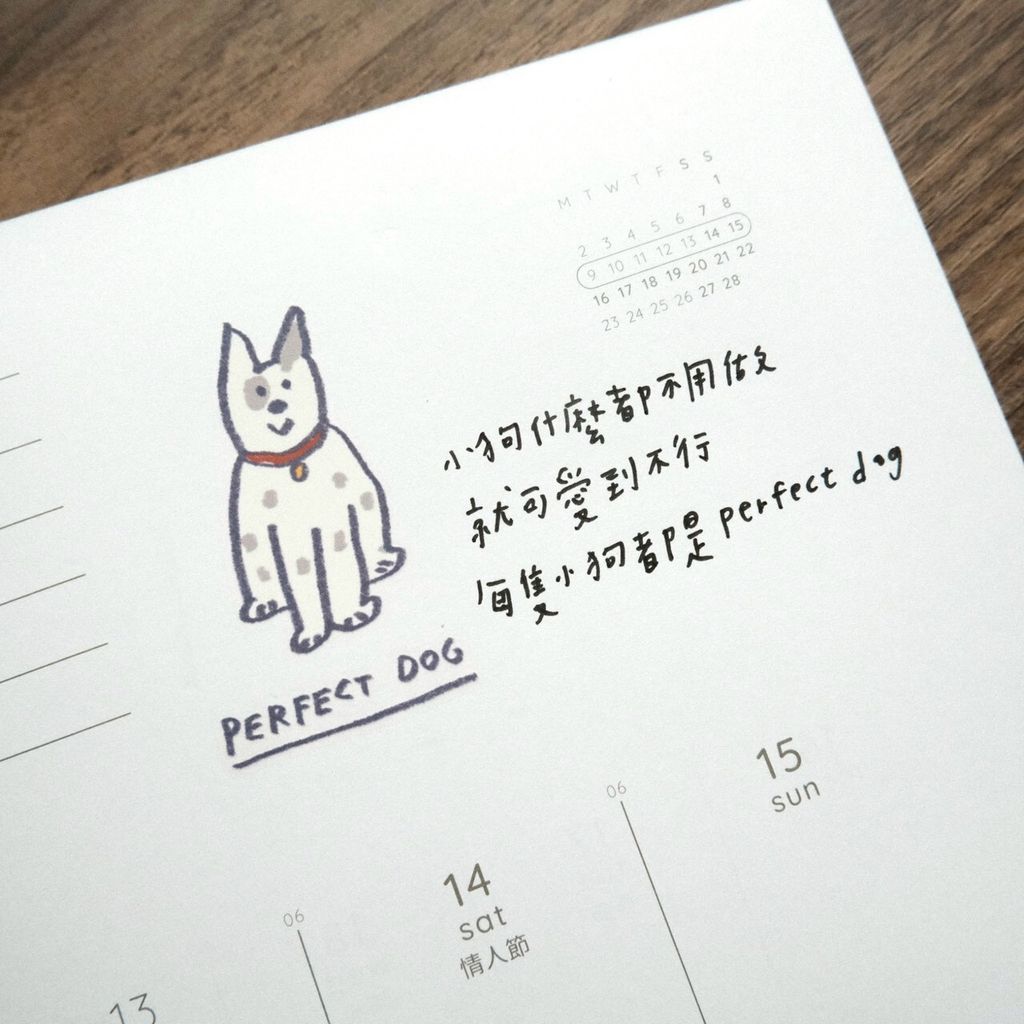 M T W T F S S
1
2 3 4 5 6 7 8
9 10 11 12 13 14 15
16 17 18 19 20 21 22
23 24 25 26 27 28
小狗什麼都不用做
就可愛到不行
每隻小狗都是 perfect dog
PERFECT DOG
15
sun
06
14
sat
情人節
06
13